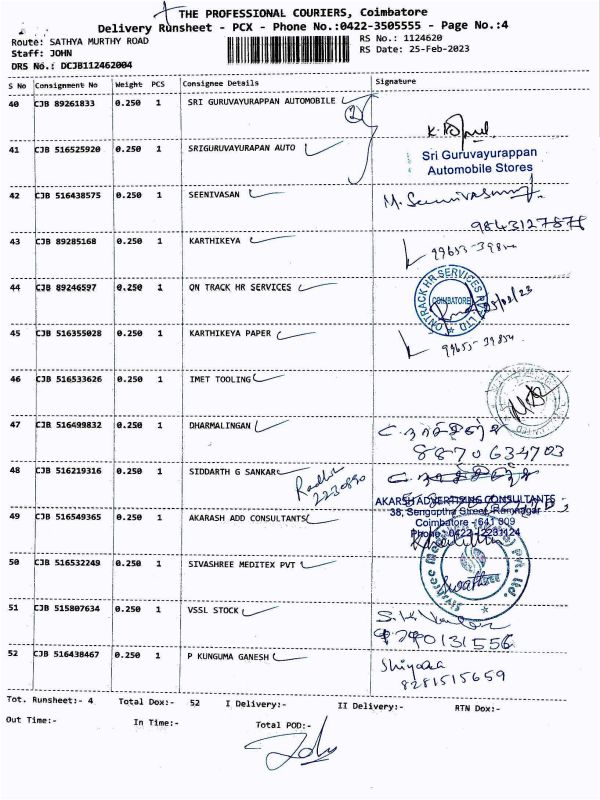 THE PROFESSIONAL COURIERS, Coimbatore
Delivery Runsheet - PCX - Phone No.:0422-3505555 - Page No.:4
Route: SATHYA MURTHY ROAD RS No.: 1124620
Staff: JOHN RS Date: 25-Feb-2023
DRS No.: DCJB112462004
S No Consignment No Weight PCS Consignee Details Signature
40 CJB 89261833 0.250 1 SRI GURUVAYURAPPAN AUTOMOBILE 2
41 CJB 516525920 0.250 1 SRIGURUVAYURAPAN AUTO
Sri Guruvayurappan
Automobile Stores
42 CJB 516438575 0.250 1 SEENIVASAN M. Seenivasan
43 CJB 89285168 0.250 1 KARTHIKEYA
44 CJB 89246597 0.250 1 ON TRACK HR SERVICES
ONTRACK HR SERVICES PVT LTD
COIMBATORE
45 CJB 516355028 0.250 1 KARTHIKEYA PAPER
46 CJB 516533626 0.250 1 IMET TOOLING
47 CJB 516499832 0.250 1 DHARMALINGAN
8870634703
48 CJB 516219316 0.250 1 SIDDARTH G SANKAR
2230890
AKARSH ADVERTISING CONSULTANTS
38, Senguptha Street, Ramnagar
Coimbatore - 641 009
Phone: 0422-2231124
49 CJB 516549365 0.250 1 AKARASH ADD CONSULTANTS
50 CJB 516532249 0.250 1 SIVASHREE MEDITEX PVT
Swathi
51 CJB 515807634 0.250 1 VSSL STOCK
52 CJB 516438467 0.250 1 P KUNGUMA GANESH
8281515659
Tot. Runsheet:- 4 Total Dox:- 52 I Delivery:- II Delivery:- RTN Dox:-
Out Time:- In Time:- Total POD:-